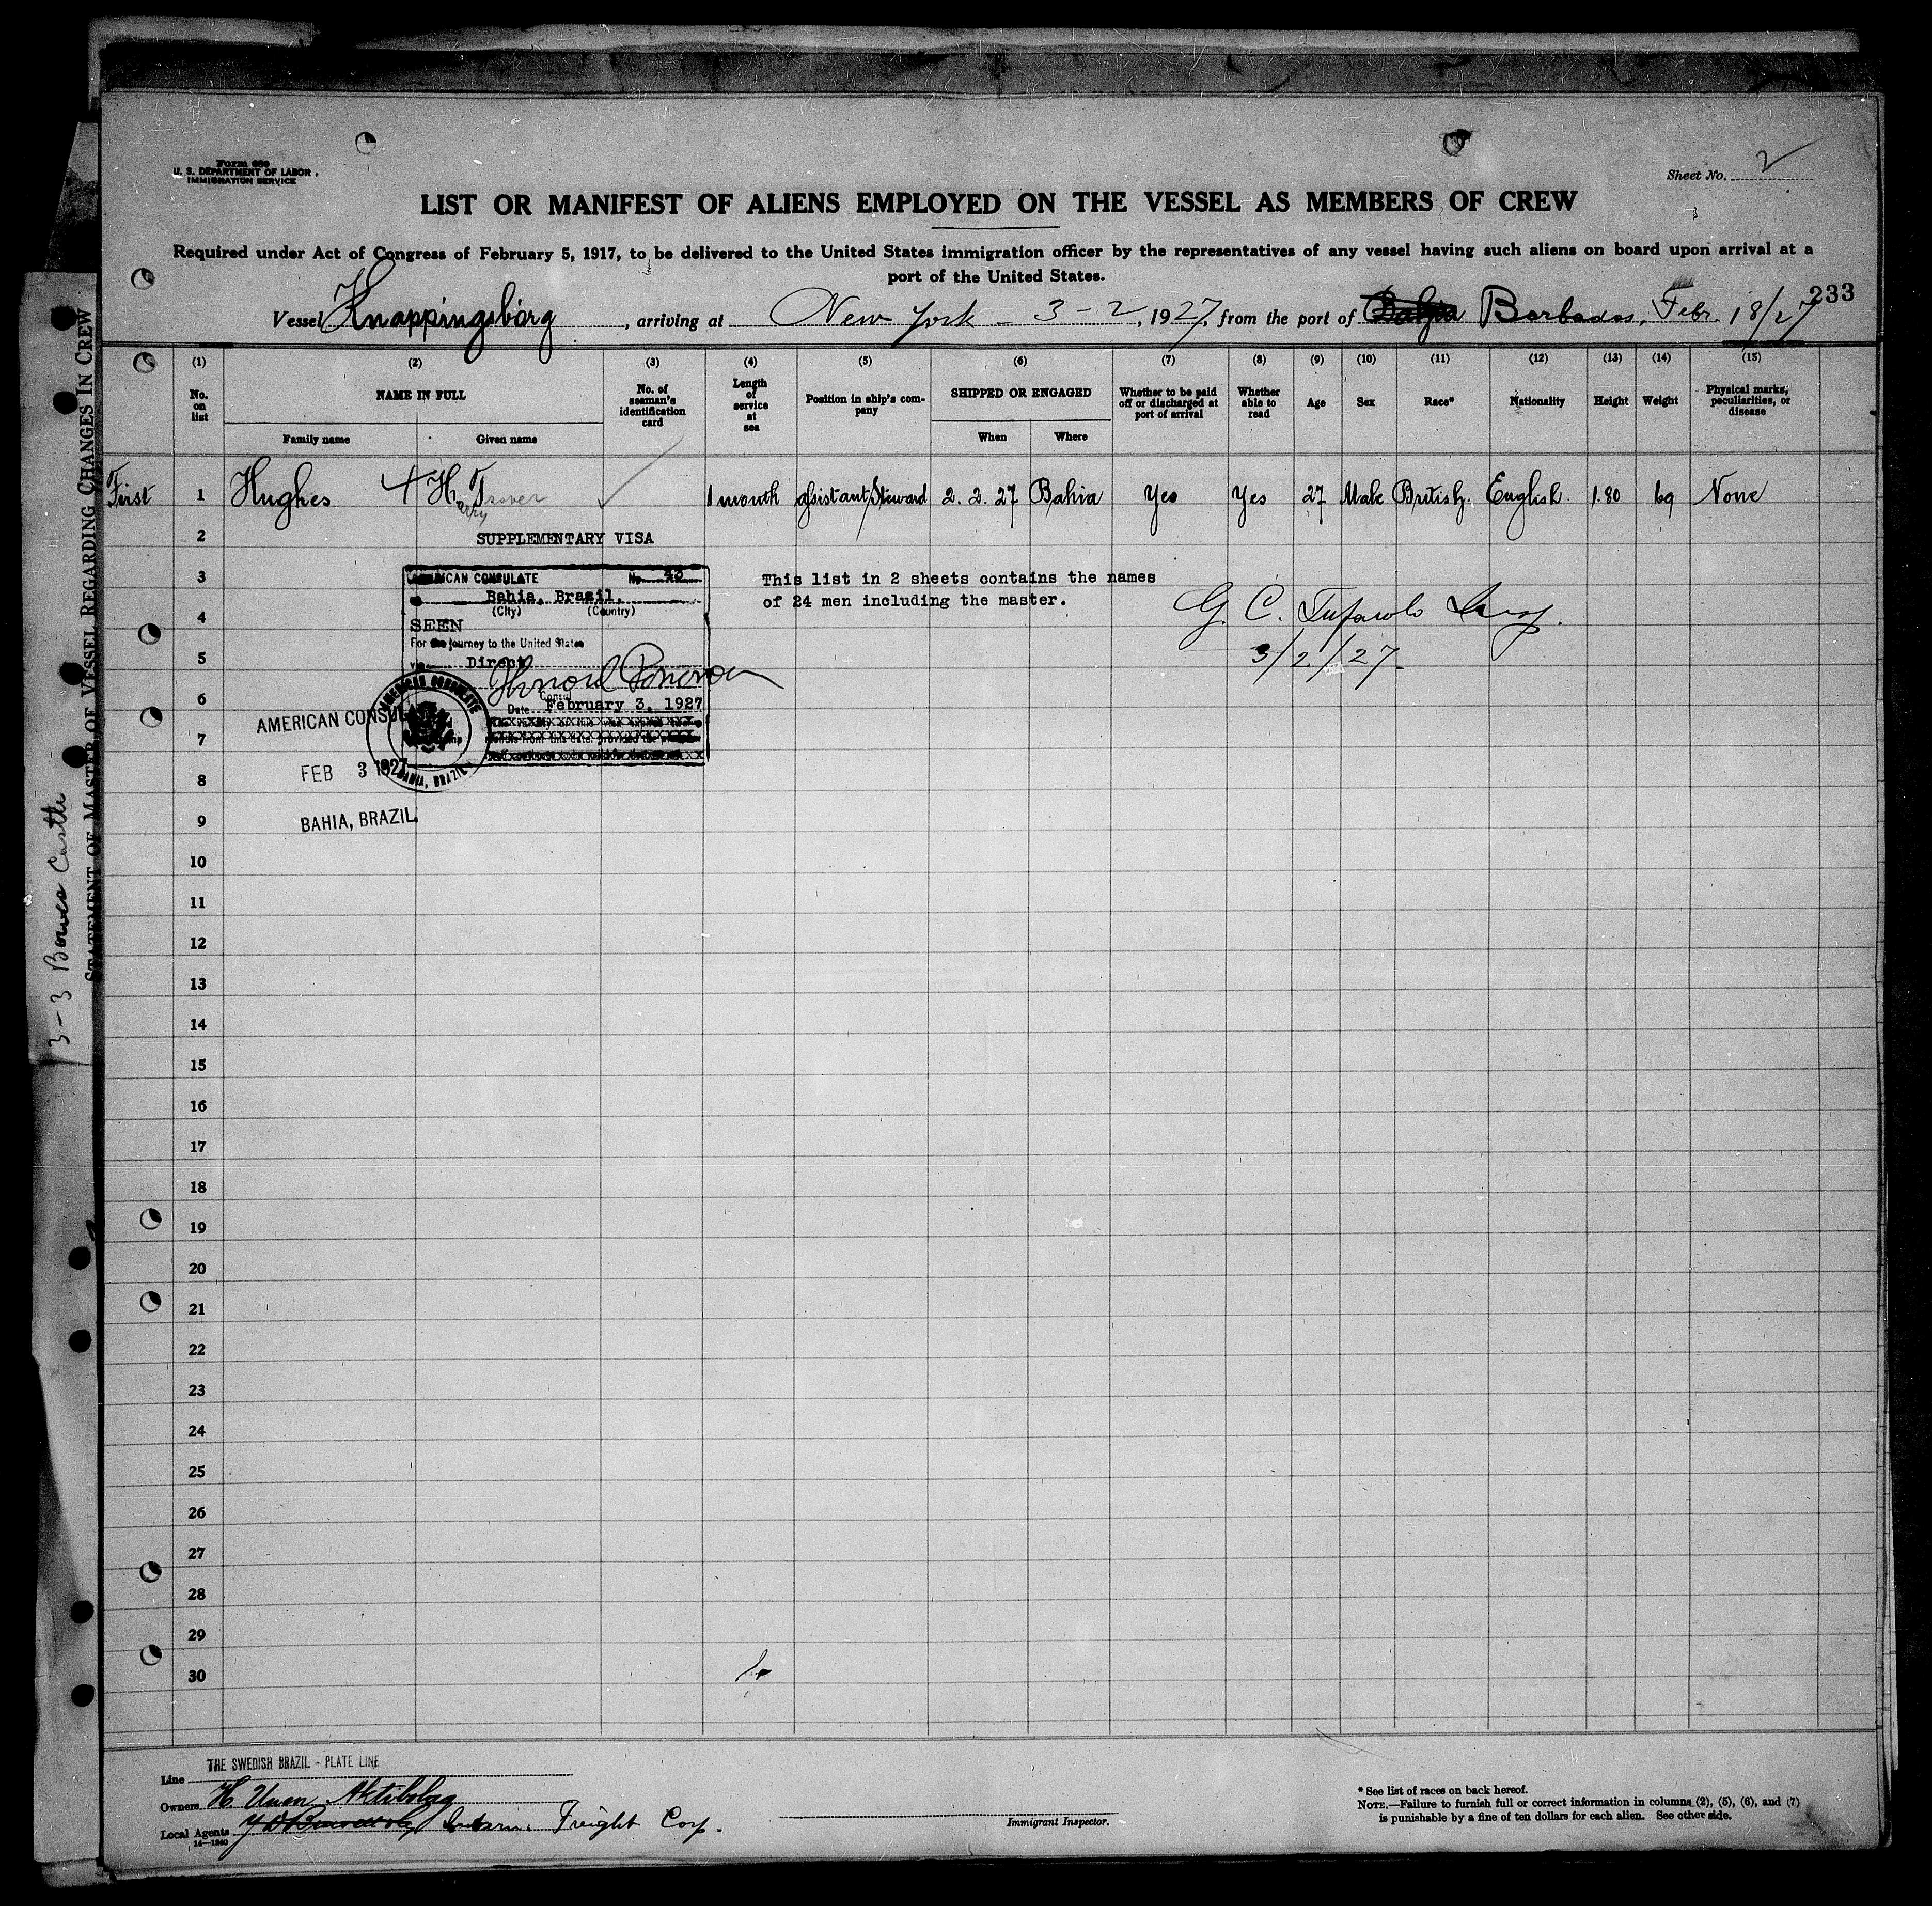 Form 680
U. S. DEPARTMENT OF LABOR
IMMIGRATION SERVICE
Sheet No. 2
LIST OR MANIFEST OF ALIENS EMPLOYED ON THE VESSEL AS MEMBERS OF CREW
Required under Act of Congress of February 5, 1917, to be delivered to the United States immigration officer by the representatives of any vessel having such aliens on board upon arrival at a
port of the United States.
233
Vessel Knappingsborg, arriving at New York - 3-2, 1927, from the port of Bahia Barbados, Febr. 18/27
(1) (2) (3) (4) (5) (6) (7) (8) (9) (10) (11) (12) (13) (14) (15)
No. on list
NAME IN FULL
Family name Given name
No. of seaman's identification card
Length of service at sea
Position in ship's company
SHIPPED OR ENGAGED
When Where
Whether to be paid off or discharged at port of arrival
Whether able to read
Age
Sex
Race*
Nationality
Height
Weight
Physical marks, peculiarities, or disease
First 1 Hughes H. Harry 1 month assistant Steward 2. 2. 27 Bahia Yes Yes 27 Male British English 1.80 69 None
2
SUPPLEMENTARY VISA
3
AMERICAN CONSULATE No. 43
Bahia, Brazil.
(City) (Country)
SEEN
For the journey to the United States
via Direct
Consul
Date February 3, 1927
This list in 2 sheets contains the names
of 24 men including the master.
G. C.
3/2/27
4
5
6
7
8
9
AMERICAN CONSULATE
BAHIA, BRAZIL
AMERICAN CONSUL
FEB 3 1927
BAHIA, BRAZIL
10
11
12
13
14
15
16
17
18
19
20
21
22
23
24
25
26
27
28
29
30
Line THE SWEDISH BRAZIL - PLATE LINE
Owners Aktibolag
Local Agents Freight Corp.
14-1240
Immigrant Inspector.
* See list of races on back hereof.
NOTE.—Failure to furnish full or correct information in columns (2), (5), (6), and (7)
is punishable by a fine of ten dollars for each alien. See other side.
STATEMENT OF MASTER OF VESSEL REGARDING CHANGES IN CREW
3-3 Bowes Castle